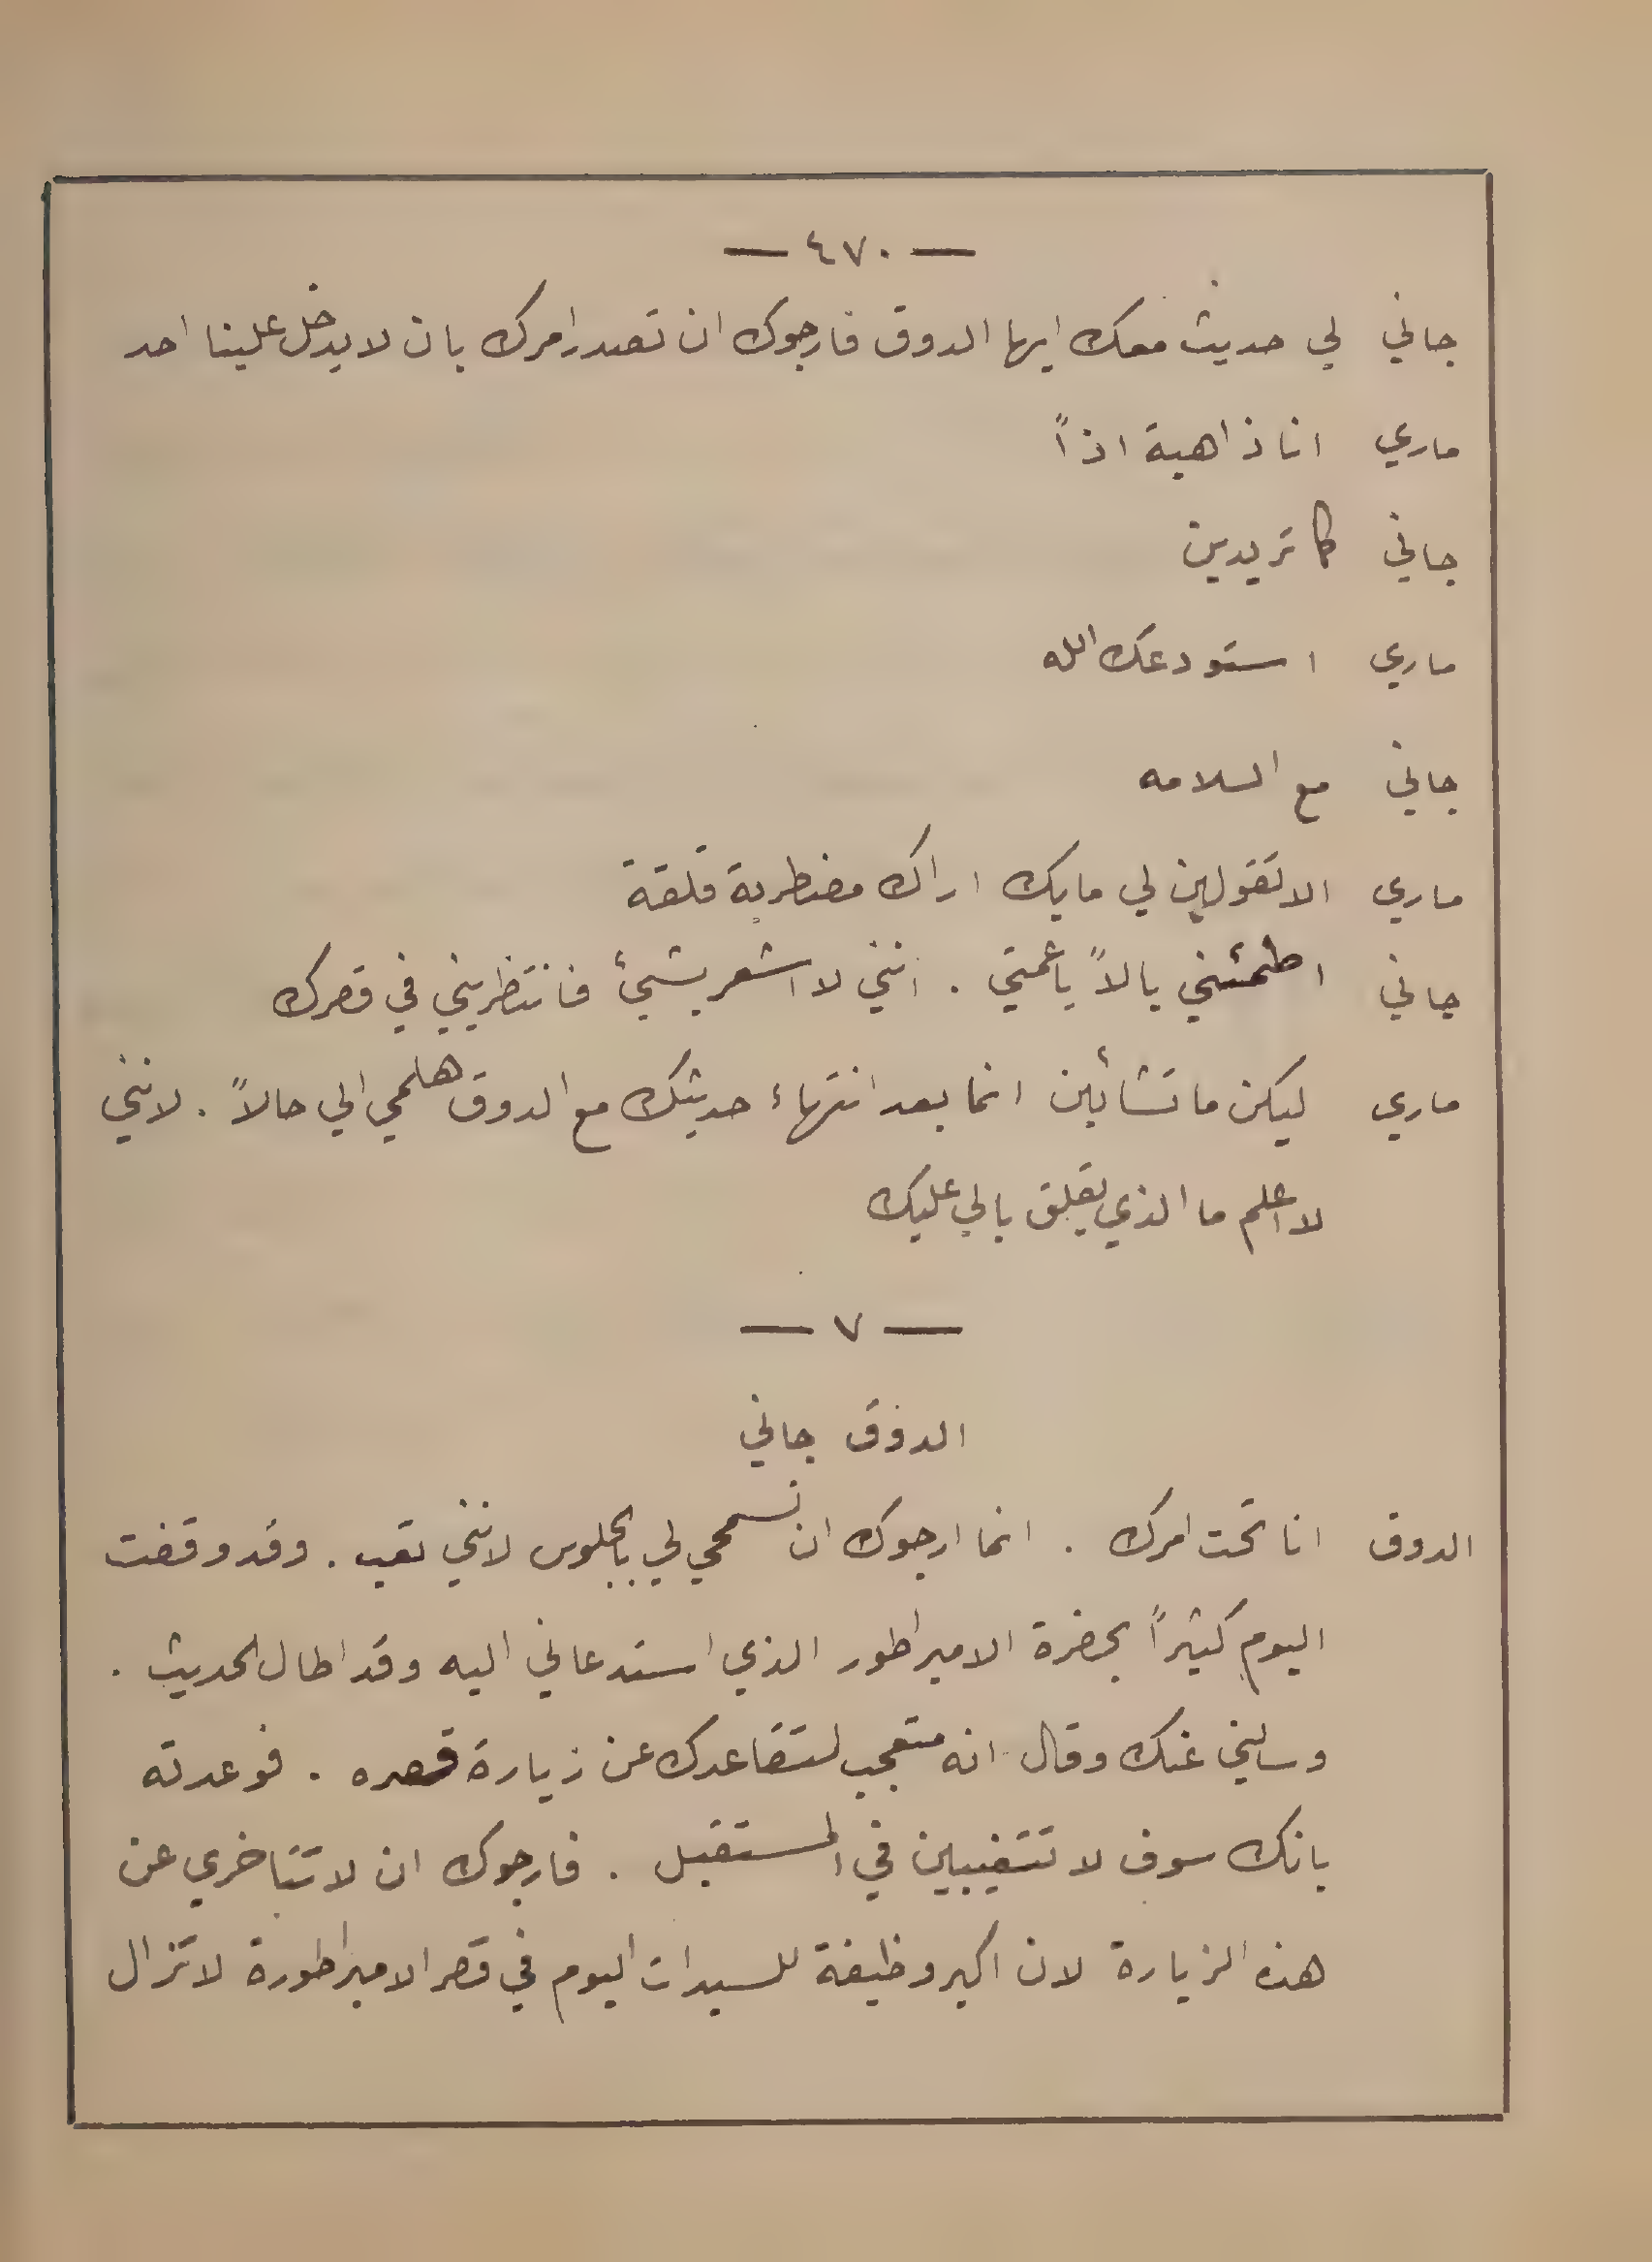 — ٤٧٠ —
جاني لي حديث معك ايها الدوق فارجوك ان تصدر امرك بان لا يدخل علينا احد
ماري انا ذاهبة اذاً
جاني كما تريدين
ماري استودعك الله
جاني مع السلامه
ماري الا تقولين لي ما بك اراك مضطربة قلقة
جاني اطمئني بالاً يا عمتي . انني لا اشعر بشيئ فانتظريني في قصرك
ماري ليكن ما تشائين انما بعد انتهاء حديثك مع الدوق هلمي الي حالاً . لانني
لا اعلم ما الذي يقلق بالي عليك
— ٧ —
الدوق جاني
الدوق انا تحت امرك . انما ارجوك ان تسمحي لي بالجلوس لانني تعب . وقد وقفت
اليوم كثيراً بحضرة الامبراطور الذي استدعاني اليه وقد اطال الحديث .
وسالني عنك وقال انه متعجب لتقاعدك عن زيارة قصره . فوعدته
بانك سوف لا تتغيبين في المستقبل . فارجوك ان لا تتاخري عن
هذه الزيارة لان اكبر وظيفة للسيدات اليوم في قصر الامبراطورة لا تزال